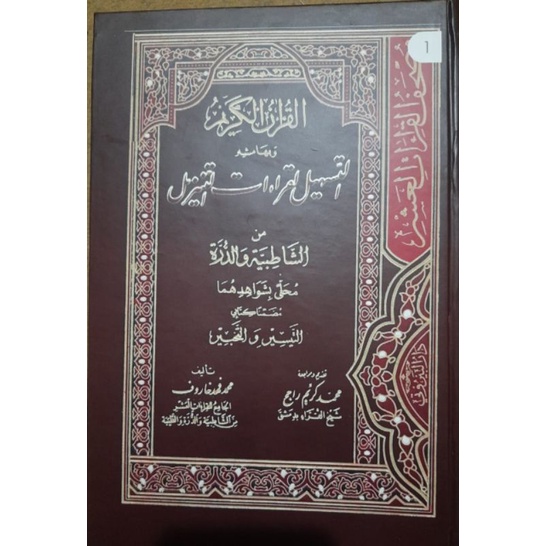 القرآن الكريم
وبهامشه
التسهيل لقراءات التنزيل
من
الشاطبية والدرة
محلى بشواهدهما
مضمنا كتابي
التيسير والتحبير
تأليف
محمد فهد خاروف
الجامع للقراءات العشر
من الشاطبية والدرة والطيبة
تقديم ومراجعة
محمد كريم راجح
شيخ القراء بدمشق
مصحف القراءات العشر
دار البيروتي
1